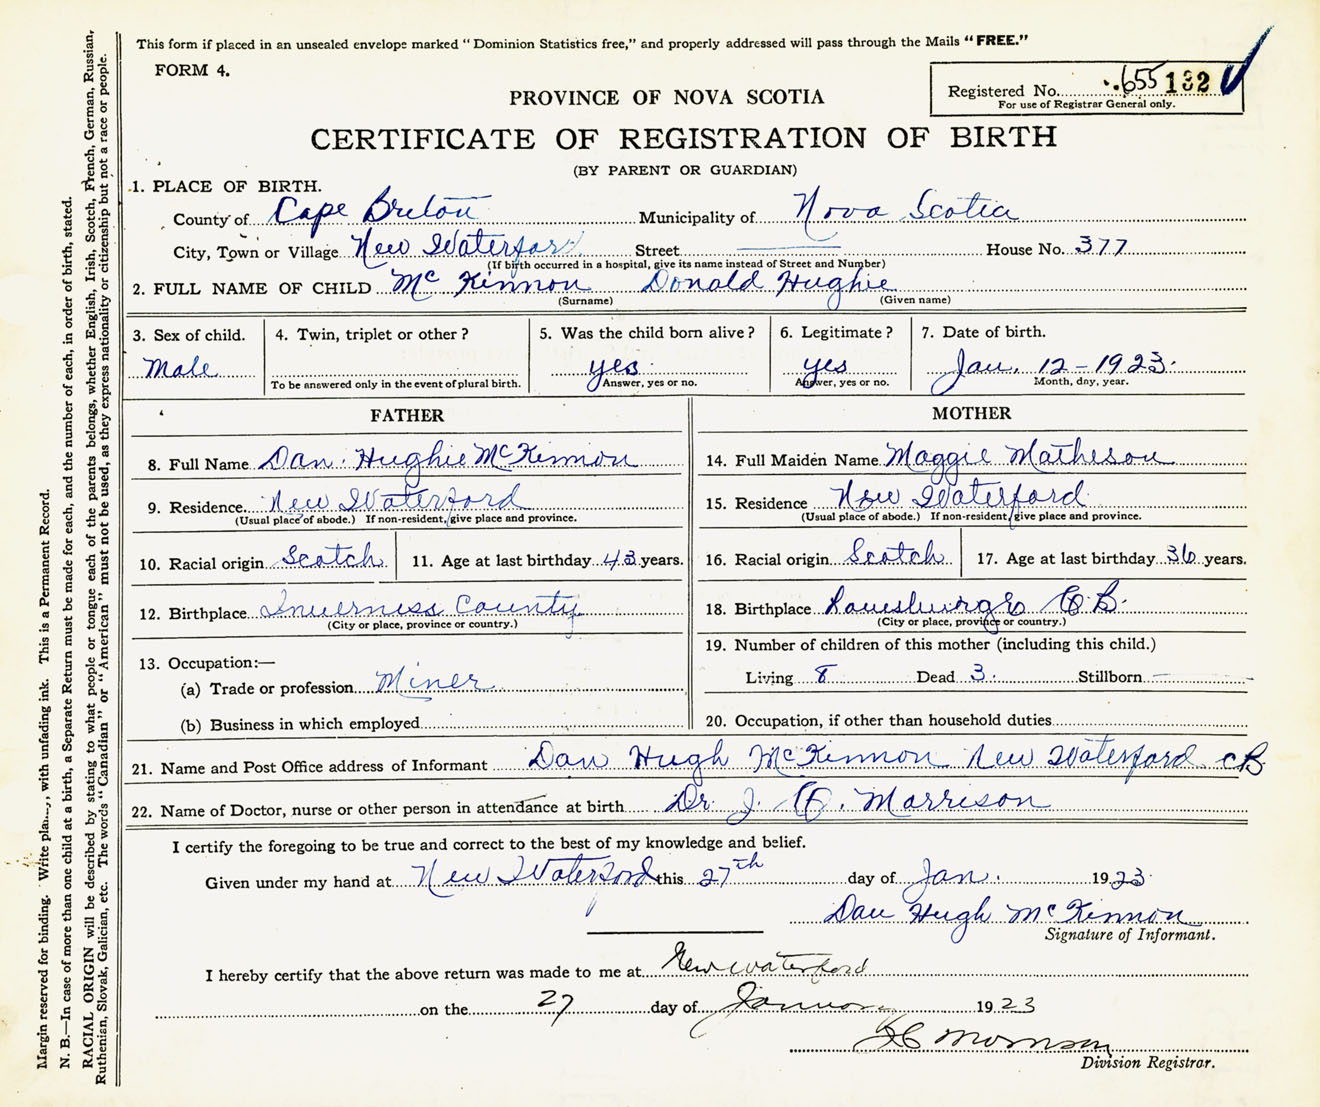 This form if placed in an unsealed envelope marked "Dominion Statistics free," and properly addressed will pass through the Mails "FREE."
FORM 4.
Registered No. 655 132
For use of Registrar General only.
PROVINCE OF NOVA SCOTIA
CERTIFICATE OF REGISTRATION OF BIRTH
(BY PARENT OR GUARDIAN)
1. PLACE OF BIRTH.
County of Cape Breton Municipality of Nova Scotia
City, Town or Village New Waterford Street House No. 377
(If birth occurred in a hospital, give its name instead of Street and Number)
2. FULL NAME OF CHILD McKinnon Donald Hughie
(Surname) (Given name)
3. Sex of child. 4. Twin, triplet or other? 5. Was the child born alive? 6. Legitimate? 7. Date of birth.
Male yes yes Jan. 12-1923.
To be answered only in the event of plural birth. Answer, yes or no. Answer, yes or no. Month, day, year.
FATHER
8. Full Name Dan. Hughie McKinnon
9. Residence New Waterford
(Usual place of abode.) If non-resident, give place and province.
10. Racial origin Scotch 11. Age at last birthday 43 years.
12. Birthplace Inverness County
(City or place, province or country.)
13. Occupation:—
(a) Trade or profession Miner
(b) Business in which employed
MOTHER
14. Full Maiden Name Maggie Matheson
15. Residence New Waterford
(Usual place of abode.) If non-resident, give place and province.
16. Racial origin Scotch 17. Age at last birthday 36 years.
18. Birthplace Louisburge C.B.
(City or place, province or country.)
19. Number of children of this mother (including this child.)
Living 8 Dead 3. Stillborn —
20. Occupation, if other than household duties
21. Name and Post Office address of Informant Dan Hugh McKinnon New Waterford CB
22. Name of Doctor, nurse or other person in attendance at birth Dr. J. Morrison
I certify the foregoing to be true and correct to the best of my knowledge and belief.
Given under my hand at New Waterford this 27th day of Jan. 1923.
Dan Hugh McKinnon
Signature of Informant.
I hereby certify that the above return was made to me at New Waterford
on the 27 day of January 1923
Morrison
Division Registrar.
Margin reserved for binding. Write with unfading ink. This is a Permanent Record.
N. B.—In case of more than one child at a birth, a Separate Return must be made for each, and the number of each, in order of birth, stated.
RACIAL ORIGIN will be described by stating to what people or tongue each of the parents belongs, whether English, Irish, Scotch, French, German, Russian,
Ruthenian, Slovak, Galician, etc. The words "Canadian" or "American" must not be used, as they express nationality or citizenship but not a race or people.